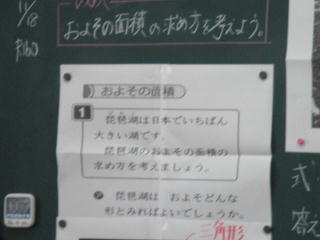 11/18
P.160
およその面積の求め方を考えよう。
およその面積
1
琵琶湖は日本でいちばん
大きい湖です。
琵琶湖のおよその面積の
求め方を考えましょう。
ア 琵琶湖は およそどんな
形とみればよいでしょうか。
三角形
式
答え